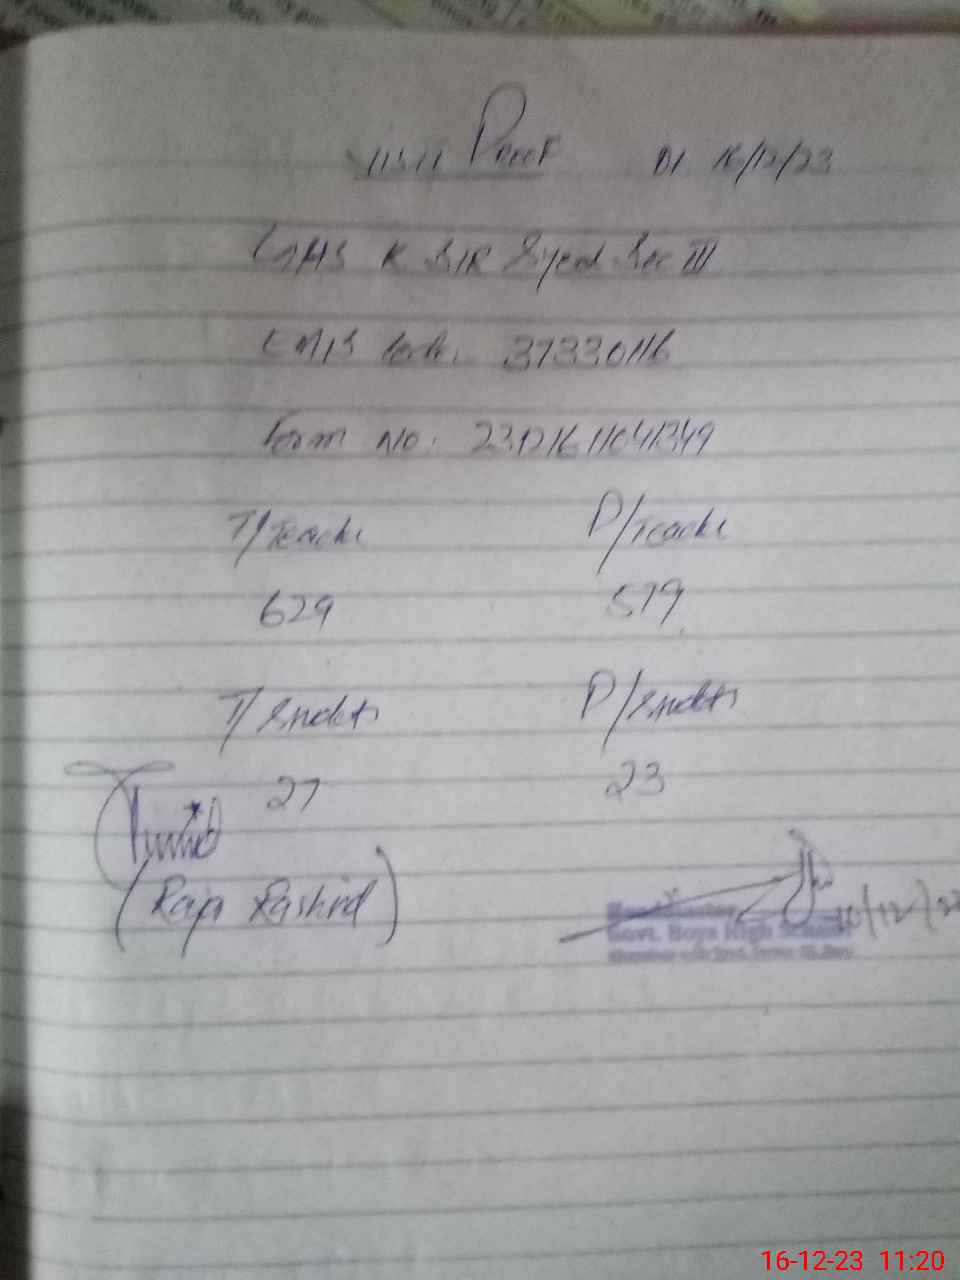 Visit Proof Dt 16/12/23
GHS K Sir Syed Sec III
EMIS Code: 37330116
Form No: 23121611041349
T/Teache P/Teache
629 579
T/Students P/Students
27 23
(Raja Rashid)
Headmaster 16/12/23
Govt. Boys High School
16-12-23 11:20